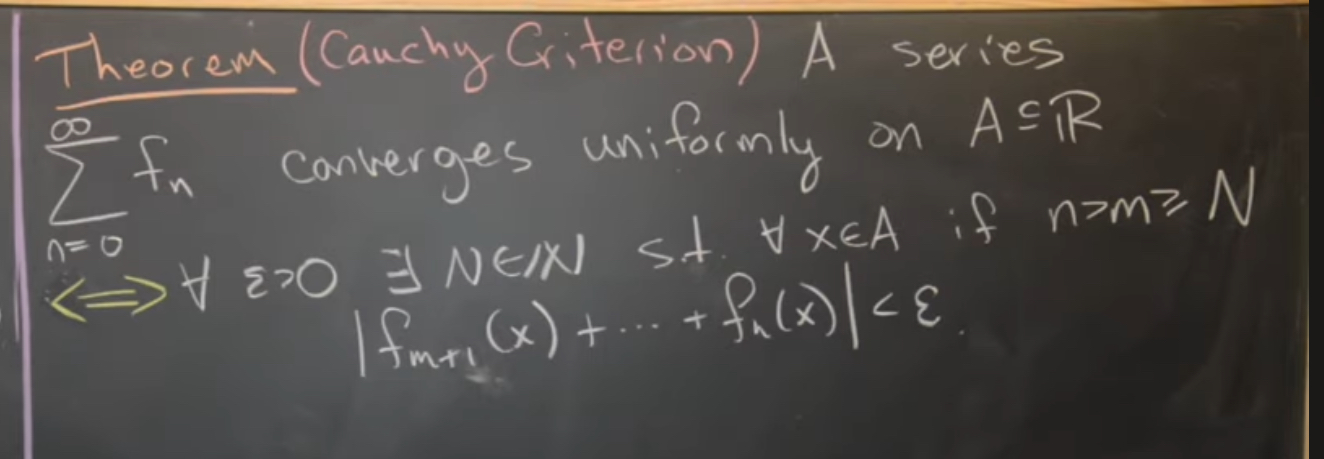 Theorem (Cauchy Criterion) A series
∞
∑ fₙ converges uniformly on A ⊆ ℝ
n=0
⟺ ∀ ε>0 ∃ N∈ℕ s.t. ∀ x∈A if n>m≥N
|fₘ₊₁(x) + ⋯ + fₙ(x)| < ε.